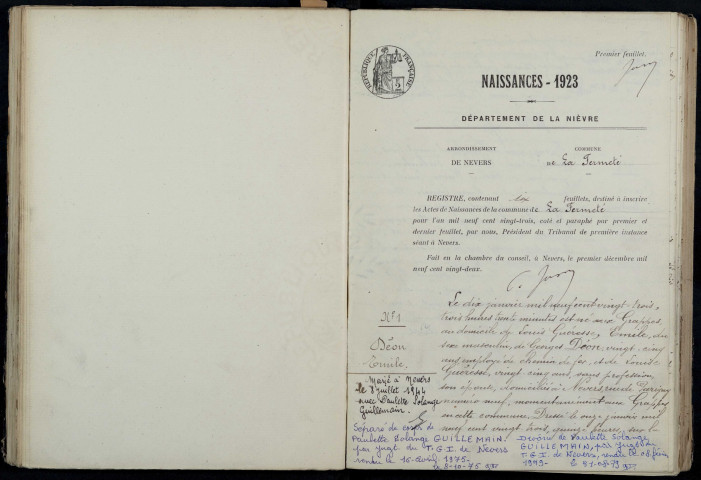 Premier feuillet.
RÉPUBLIQUE FRANÇAISE
NAISSANCES - 1923
DÉPARTEMENT DE LA NIÈVRE
ARRONDISSEMENT
DE NEVERS
COMMUNE
DE La Fermeté
REGISTRE, contenant six feuillets, destiné à inscrire
les Actes de Naissances de la commune de La Fermeté
pour l'an mil neuf cent vingt-trois, coté et paraphé par premier et
dernier feuillet, par nous, Président du Tribunal de première instance
séant à Nevers.
Fait en la chambre du conseil, à Nevers, le premier décembre mil
neuf cent vingt-deux.
N° 1
Déon
Emile
Marié à Nevers
le 8 juillet 1944
avec Paulette Solange
Guillemain.
Séparé de corps de
Paulette Solange GUILLEMAIN
par jugt du T.G.I. de Nevers
rendu le 15 1975-
le 8-10-75
Le dix janvier mil neuf cent vingt trois,
trois heures trente minutes est né aux Grappes,
au domicile de Louis Guéresse, Emile, du
sexe masculin, de Georges Déon, vingt cinq
ans employé de chemin de fer, et de
Guéresse, vingt cinq ans, sans profession,
son épouse, domiciliés à Nevers rue de
numéro neuf, momentanément aux Grappes
en cette commune. Dressé le onze janvier mil
neuf cent vingt trois, quinze heures, sur la
Divorcé de Paulette Solange
GUILLEMAIN, par jugt du
T.G.I. de Nevers, rendu le 08
1979- le 31-08-79